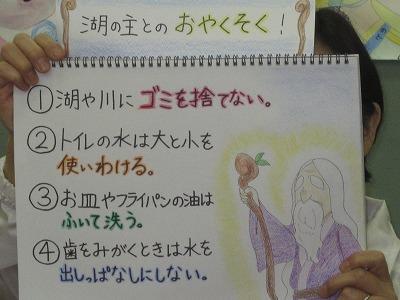 湖の主とのおやくそく!
①湖や川にゴミを捨てない。
②トイレの水は大と小を
使いわける。
③お皿やフライパンの油は
ふいて洗う。
④歯をみがくときは水を
出しっぱなしにしない。